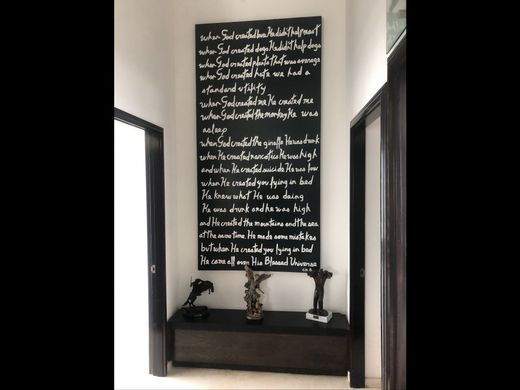 when God created love He didnt help most
when God created dogs He didnt help dogs
when God created plants that was average
when God created hate we had a
standard utility
when God created me He created me
when God created the monkey He was
asleep
when God created the giraffe He was drunk
when He created narcotics He was high
and when He created suicide He was low
when He created you lying in bed
He knew what He was doing
He was drunk and he was high
and He created the mountains and the sea
at the same time He made some mistakes
but when He created you lying in bed
He came all over His Blessed Universe